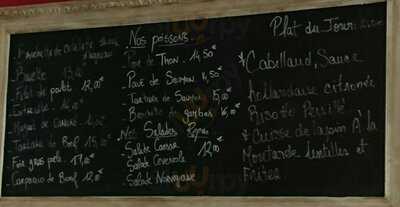 Bavette
Filet de poulet 12,00
Entrecôte
Tartare de Boeuf 15,00
Foie gras poêlé 17,00
Carpaccio de Boeuf 12,00
Nos poissons
Pavé de Thon 14,50€
Pavé de Saumon 14,50€
Tartare de Saumon 15,00€
Brochette de gambas 16,00
Nos Salades Repas
Salade Caesar 12,00€
Salade Cévenole
Salade Norvégienne
Plat du Jour
* Cabillaud, Sauce
hollandaise citronnée
Risotto Persillé
* Cuisse de lapin A la
Moutarde lentilles et
Frites